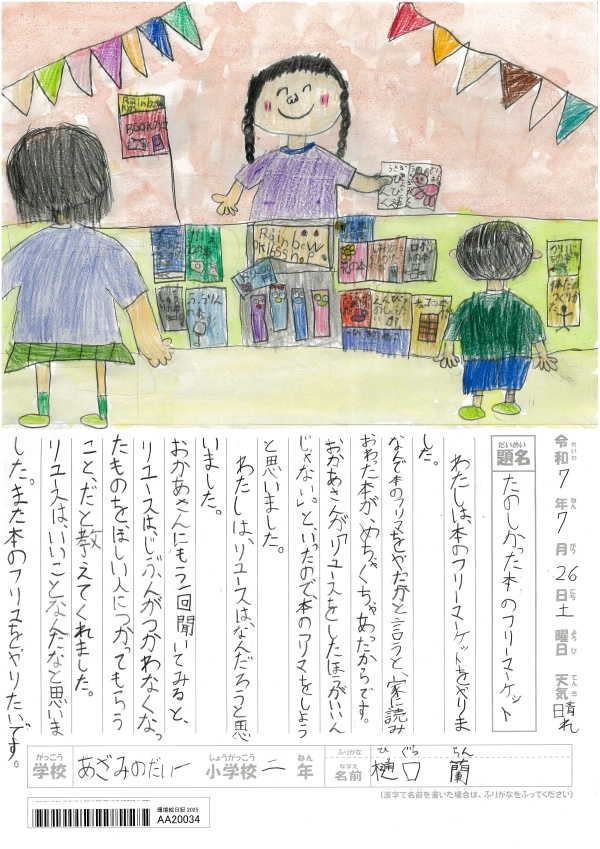 Rainbow
Kids
BOOK
Rainbow
Kids shop
令和7年7月26日土曜日 天気晴れ
れいわ ねん がつ にち ようび てんき
だいめい
題名
たのしかった本のフリーマーケット
わたしは、本のフリーマーケットをやりま
した。
なんで本のフリマをやたかと言うと、家に読み
おわた本が、めちゃくちゃあたからです。
おかあさんが「リユースをしたほうがいいん
じゃない。」といったので本のフリマをしよう
と思いました。
わたしは、リユースはなんだろうと思
いました。
おかあさんにもう一回聞いてみると、
リユースは、じぶんがつかわなくなっ
たものをほしい人につかってもらう
こと、だと教えてくれました。
リユースは、いいことなんだなと思いま
した。また本のフリマをやりたいです。
がっこう
学校
あざみのだい一
しょうがっこう
小学校
二
ねん
年
ふりがな
ひ ぐち らん
なまえ
名前
樋口 蘭
(漢字で名前を書いた場合は、ふりがなをふってください)
環境絵日記 2025
AA20034